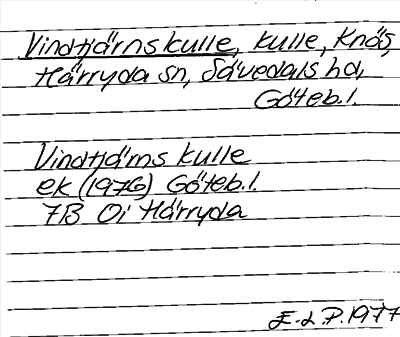 Vindtjärnskulle, kulle, Knös,
Härryda sn, Sävedals hd,
Göteb.l.
Vindtjärns kulle
ek (1976) Göteb.l.
7B 0i Härryda
E-L P. 1977